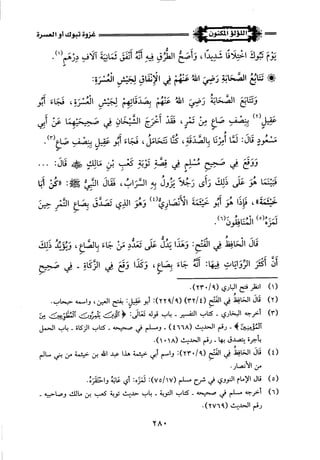 اللؤلؤ المكنون
غزوة تبوك أو العسرة
يَوْمَ تَبُوكَ اخْتِلَافًا شَدِيدًا، وَأَصَحُّ الطُّرُقِ فِيهِ أَنَّهُ أَنْفَقَ ثَمَانِيَةَ آلَافِ دِرْهَمٍ(١).
* تَتَابُعُ الصَّحَابَةِ رَضِيَ اللهُ عَنْهُمْ فِي الْإِنْفَاقِ لِجَيْشِ الْعُسْرَةِ:
وَتَتَابَعَ الصَّحَابَةُ رَضِيَ اللهُ عَنْهُمْ بِصَدَقَاتِهِمْ لِجَيْشِ الْعُسْرَةِ، فَجَاءَ أَبُو
عَقِيلٍ(٢) بِنِصْفِ صَاعٍ مِنْ تَمْرٍ، فَقَدْ أَخْرَجَ الشَّيْخَانِ فِي صَحِيحَيْهِمَا عَنْ أَبِي
مَسْعُودٍ قَالَ: لَمَّا أُمِرْنَا بِالصَّدَقَةِ، كُنَّا نَتَحَامَلُ، فَجَاءَ أَبُو عَقِيلٍ بِنِصْفِ صَاعٍ(٣).
وَوَقَعَ فِي صَحِيحِ مُسْلِمٍ فِي قِصَّةِ تَوْبَةِ كَعْبِ بْنِ مَالِكٍ ﷺ قَالَ: ...
فَبَيْنَمَا هُوَ عَلَى ذَلِكَ رَأَى رَجُلًا يَزُولُ بِهِ السَّرَابُ، فَقَالَ النَّبِيُّ ﷺ: «كُنْ أَبَا
خَيْثَمَةَ»، فَإِذَا هُوَ أَبُو خَيْثَمَةَ الْأَنْصَارِيُّ(٤) وَهُوَ الَّذِي تَصَدَّقَ بِصَاعِ التَّمْرِ حِينَ
لَمَزَهُ(٥) الْمُنَافِقُونَ(٦).
قَالَ الْحَافِظُ فِي الْفَتْحِ: وَهَذَا يَدُلُّ عَلَى تَعَدُّدِ مَنْ جَاءَ بِالصَّاعِ، وَيُؤَيِّدُ ذَلِكَ
أَنَّ أَكْثَرَ الرِّوَايَاتِ فِيهَا: أَنَّهُ جَاءَ بِصَاعٍ، وَكَذَا وَقَعَ فِي الزَّكَاةِ - فِي صَحِيحِ
(١) انظر فتح الباري (٢٣٠/٩).
(٢) قال الحافظ في الفتح (٣٢/٤) (٢٢٩/٩): أبو عقيل: بفتح العين، واسمه حبحاب.
(٣) أخرجه البخاري - كتاب التفسير - باب قوله تعالى: ﴿الَّذِينَ يَلْمِزُونَ الْمُطَّوِّعِينَ مِنَ
الْمُؤْمِنِينَ﴾ - رقم الحديث (٤٦٦٨) - ومسلم في صحيحه - كتاب الزكاة - باب الحمل
بأجرة يتصدق بها - رقم الحديث (١٠١٨).
(٤) قال الحافظ في الفتح (٢٣٠/٩): واسم أبي خيثمة هذا عبد الله بن خيثمة من بني سالم
من الأنصار.
(٥) قال الإمام النووي في شرح مسلم (٧٥/١٧): لمزه: أي عابهُ واحتقرَهُ.
(٦) أخرجه مسلم في صحيحه - كتاب التوبة - باب حديث توبة كعب بن مالك وصاحبيه -
رقم الحديث (٢٧٦٩).
٢٨٠